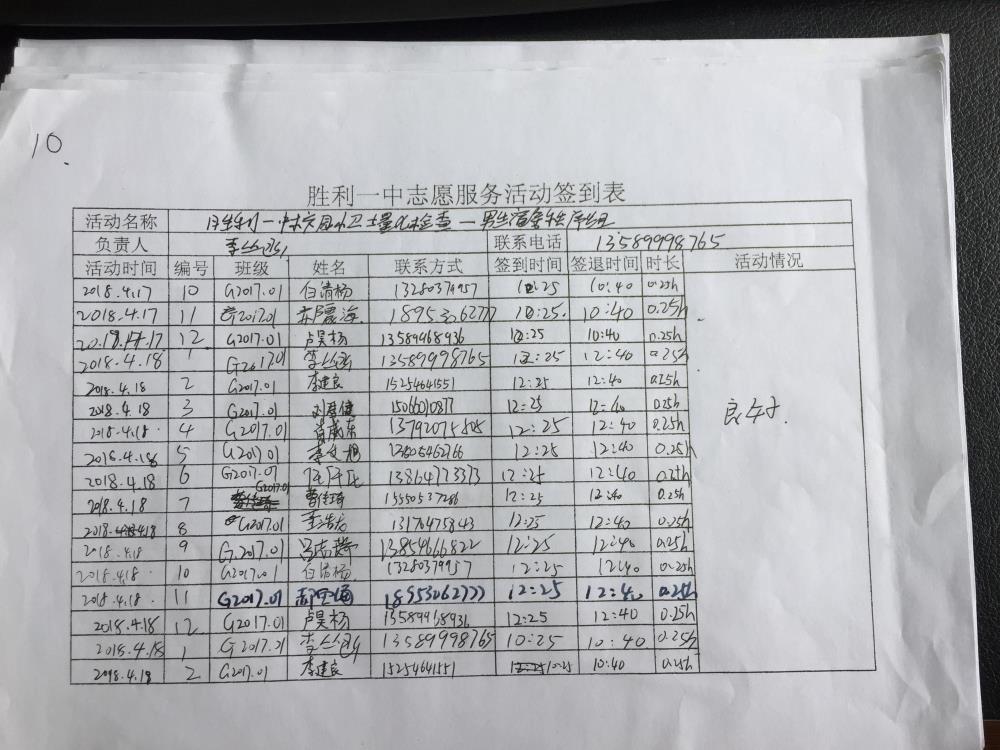 10.
胜利一中志愿服务活动签到表
活动名称 胜利一中校园卫生量化检查—男生宿舍秩序组
负责人 联系电话 13589998765
活动时间 编号 班级 姓名 联系方式 签到时间 签退时间 时长 活动情况
2018.4.17 10 G2017.01 白清杨 13280379957 10:25 10:40 0.25h
2018.4.17 11 G2017.01 10:25 10:40 0.25h
2018.4.17 12 G2017.01 卢昊杨 13589468936 10:25 10:40 0.25h
2018.4.18 1 G2017.01 13589998765 12:25 12:40 0.25h
2018.4.18 2 G2017.01 李建良 15254641551 12:25 12:40 0.25h
2018.4.18 3 G2017.01 15066010877 12:25 12:40 0.25h
2018.4.18 4 G2017.01 肖威东 12:25 12:40 0.25h
2018.4.18 5 G2017.01 12:25 12:40 0.25h
2018.4.18 6 G2017.01 13864773373 12:25 12:40 0.25h
2018.4.18 7 G2017.01 15550537286 12:25 12:40 0.25h
2018.4.18 8 G2017.01 李浩龙 13176475843 12:25 12:40 0.25h
2018.4.18 9 G2017.01 13854666822 12:25 12:40 0.25h
2018.4.18 10 G2017.01 白清杨 13280379957 12:25 12:40 0.25h
2018.4.18 11 G2017.01 18953062777 12:25 12:40 0.25h
2018.4.18 12 G2017.01 卢昊杨 13589468936 12:25 12:40 0.25h
2018.4.18 1 G2017.01 13589998765 10:25 10:40 0.25h
2018.4.18 2 G2017.01 李建良 15254641551 10:25 10:40 0.25h
良好